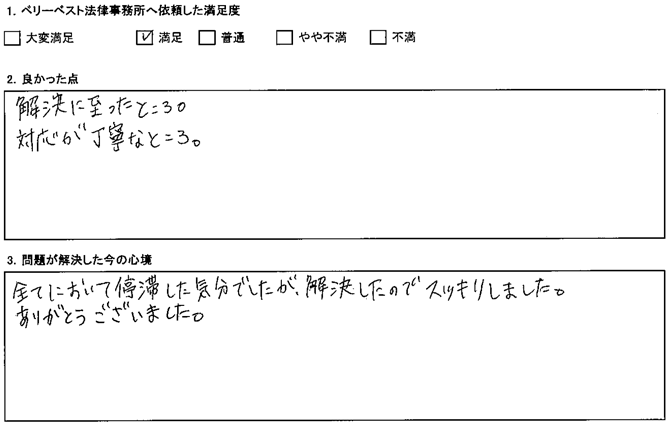 1. ベリーベスト法律事務所へ依頼した満足度
□ 大変満足 ☑ 満足 □ 普通 □ やや不満 □ 不満
2. 良かった点
解決に至ったところ。
対応が丁寧なところ。
3. 問題が解決した今の心境
全てにおいて停滞した気分でしたが、解決したのでスッキリしました。
ありがとうございました。